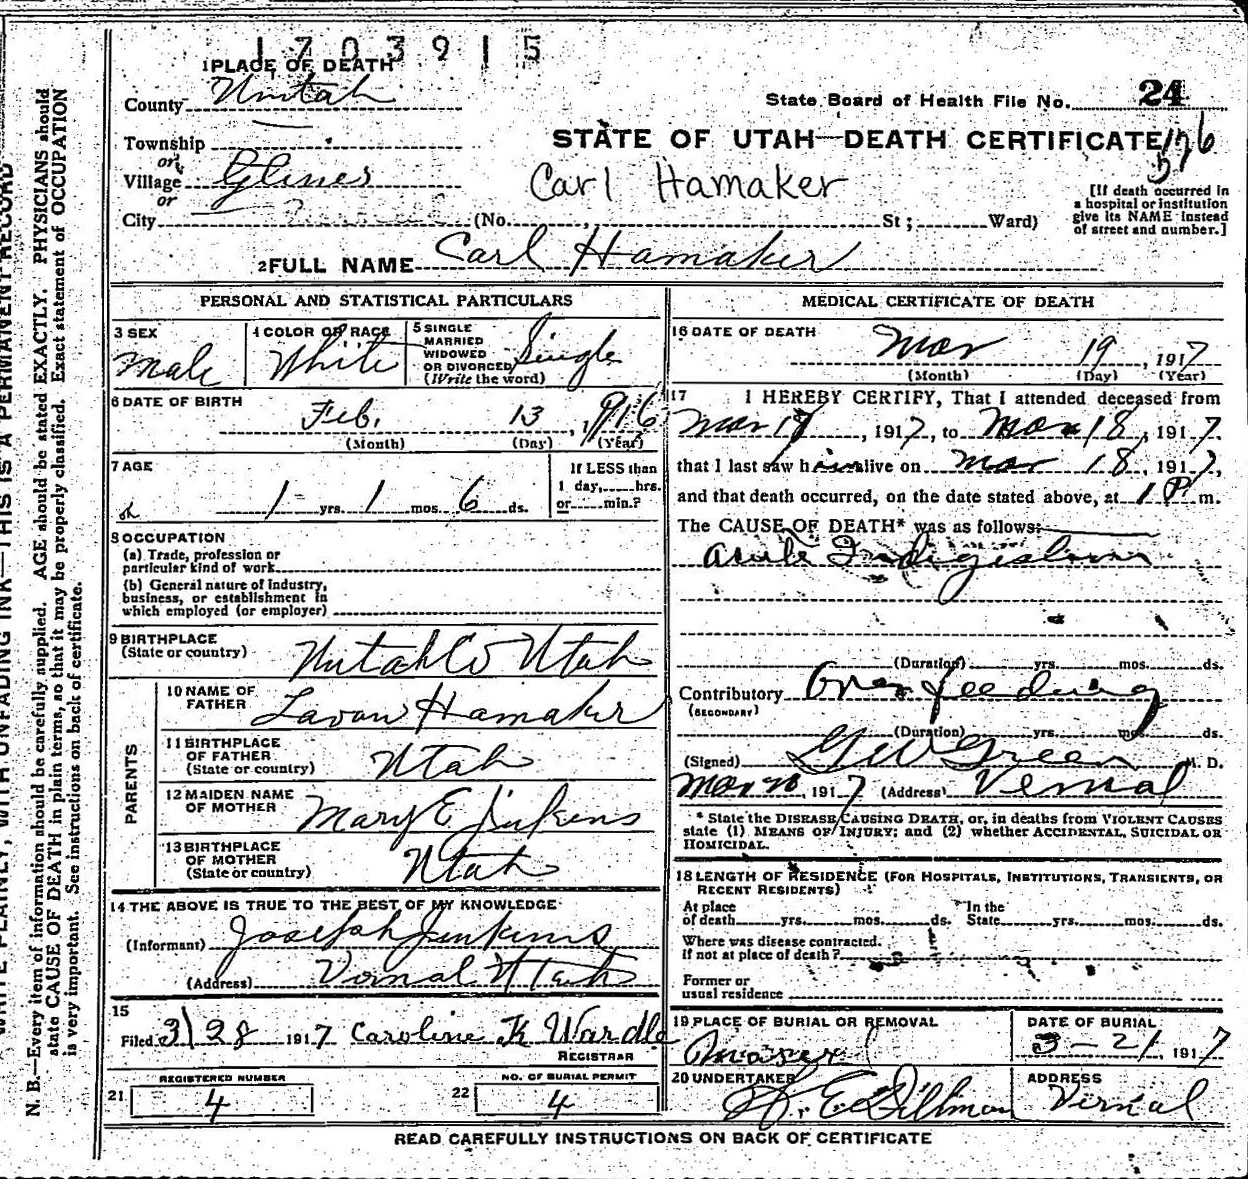 1703915
1 PLACE OF DEATH
County Uintah
State Board of Health File No. 24
Township
STATE OF UTAH—DEATH CERTIFICATE 176
or
Village Glines
Carl Hamaker
or
City (No. St; Ward)
[If death occurred in
a hospital or institution
give its NAME instead
of street and number.]
2 FULL NAME Carl Hamaker
PERSONAL AND STATISTICAL PARTICULARS
3 SEX
Male
4 COLOR OR RACE
White
5 SINGLE
MARRIED
WIDOWED
OR DIVORCED
(Write the word)
Single
6 DATE OF BIRTH
Feb. 13, 1916
(Month) (Day) (Year)
7 AGE
1 yrs. 1 mos. 6 ds.
If LESS than
1 day, hrs.
or min.?
8 OCCUPATION
(a) Trade, profession or
particular kind of work
(b) General nature of industry,
business, or establishment in
which employed (or employer)
9 BIRTHPLACE
(State or country)
Uintah Co Utah
PARENTS
10 NAME OF
FATHER
Lavon Hamaker
11 BIRTHPLACE
OF FATHER
(State or country)
Utah
12 MAIDEN NAME
OF MOTHER
Mary E Jinkins
13 BIRTHPLACE
OF MOTHER
(State or country)
Utah
14 THE ABOVE IS TRUE TO THE BEST OF MY KNOWLEDGE
(Informant) Joseph Jenkins
(Address) Vernal Utah
15
Filed 3/28 1917 Caroline K Wardle
REGISTRAR
REGISTERED NUMBER
21 4
NO. OF BURIAL PERMIT
22 4
MEDICAL CERTIFICATE OF DEATH
16 DATE OF DEATH
Mar 19, 1917
(Month) (Day) (Year)
17 I HEREBY CERTIFY, That I attended deceased from
Mar 18, 1917, to Mar 18, 1917,
that I last saw him alive on Mar 18, 1917,
and that death occurred, on the date stated above, at 1 P. m.
The CAUSE OF DEATH* was as follows:
Acute Indigestion
(Duration) yrs. mos. ds.
Contributory Over feeding
(SECONDARY)
(Duration) yrs. mos. ds.
(Signed) G W Green M. D.
Mar 20, 1917 (Address) Vernal
* State the DISEASE CAUSING DEATH, or, in deaths from VIOLENT CAUSES
state (1) MEANS OF INJURY; and (2) whether ACCIDENTAL, SUICIDAL OR
HOMICIDAL.
18 LENGTH OF RESIDENCE (FOR HOSPITALS, INSTITUTIONS, TRANSIENTS, OR
RECENT RESIDENTS)
At place
of death yrs. mos. ds.
In the
State yrs. mos. ds.
Where was disease contracted,
if not at place of death?
Former or
usual residence
19 PLACE OF BURIAL OR REMOVAL
Maeser
DATE OF BURIAL
3-21, 1917
20 UNDERTAKER
Dillman
ADDRESS
Vernal
READ CAREFULLY INSTRUCTIONS ON BACK OF CERTIFICATE
WRITE PLAINLY, WITH UNFADING INK—THIS IS A PERMANENT RECORD
N. B.—Every item of information should be carefully supplied. AGE should be stated EXACTLY. PHYSICIANS should
state CAUSE OF DEATH in plain terms, so that it may be properly classified. Exact statement of OCCUPATION
is very important. See instructions on back of certificate.